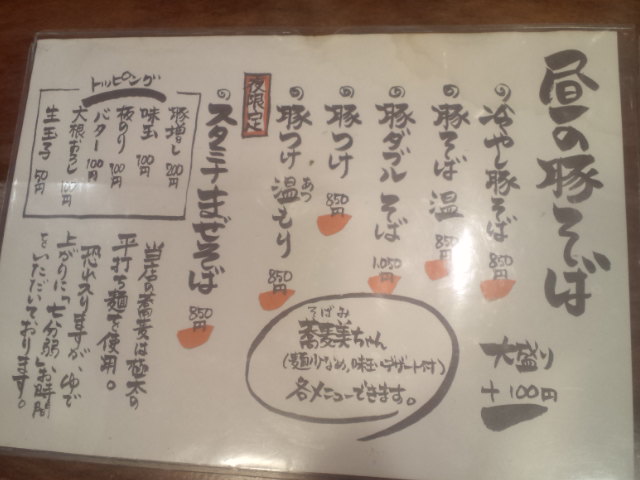 昼の豚そば
冷やし豚そば 850円
豚そば 温 850円
豚ダブルそば 1050円
豚つけ 850円
豚つけ 温もり 850円
あつ
夜限定
スタミナまぜそば 850円
大盛り
+100円
そばみ
蕎麦美ちゃん
(麺少なめ、味玉、デザート付)
各メニューできます。
トッピング
豚増し 200円
味玉 100円
板のり 100円
バター 100円
大根おろし
生玉子 50円
当店の蕎麦は極太の
平打ち麺を使用。
恐れ入りますが、ゆで
上がりに「七分弱」お時間
をいただいております。